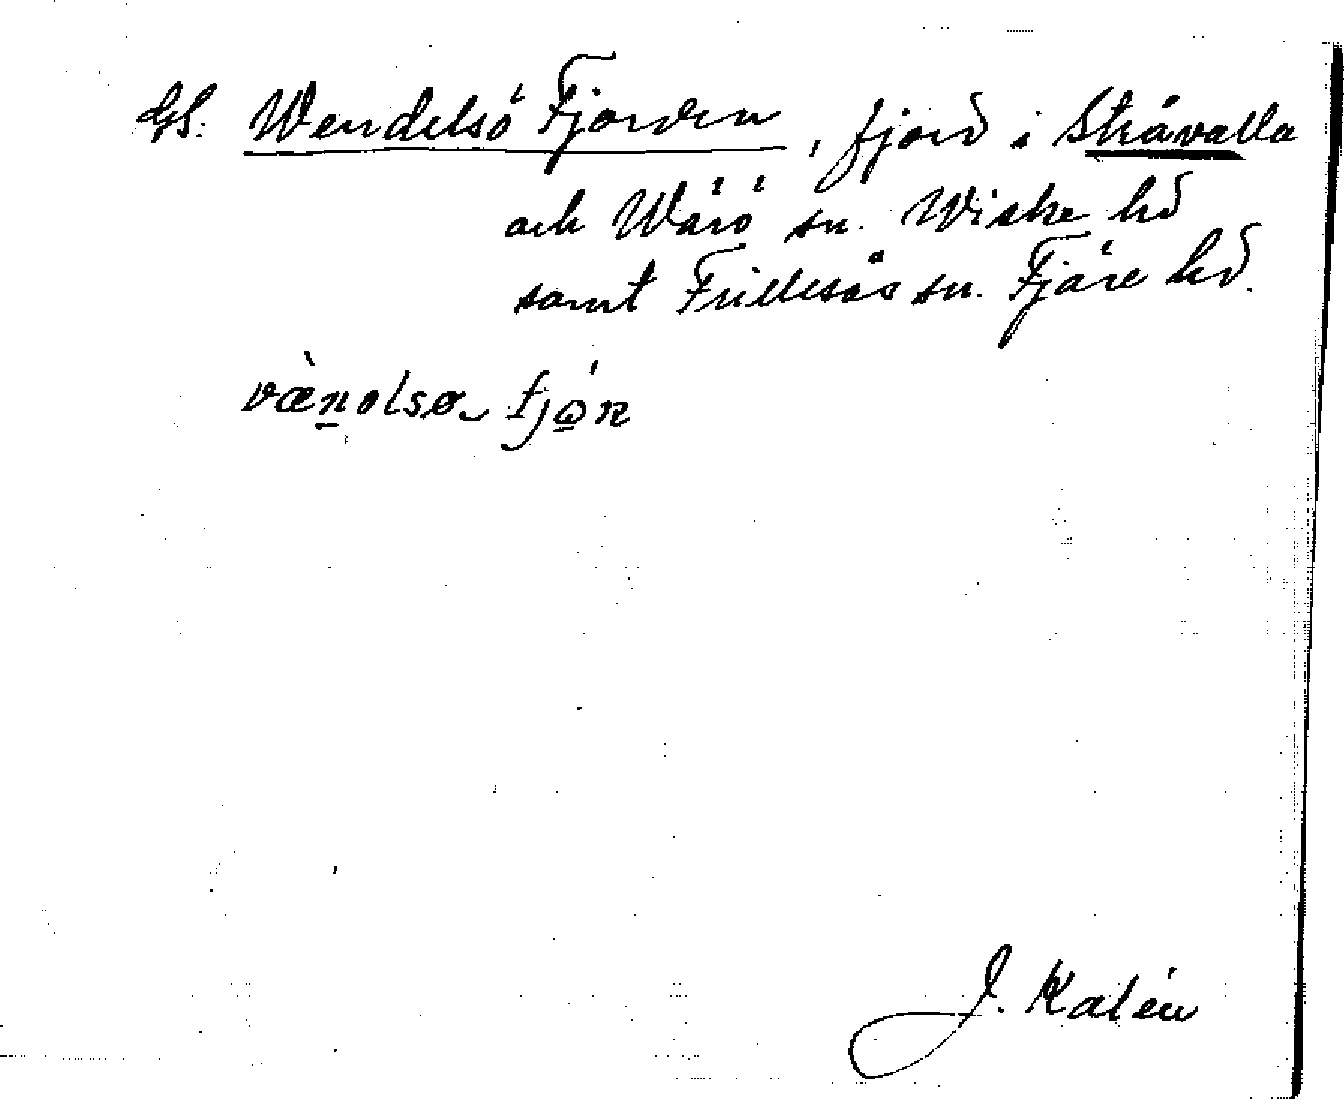 GS. Wendelsö Fjorden, fjord i Stråvalla
och Wärö sn. Wiske hd
samt Frillesås sn. Fjäre hd.
væ̀n̲olsø fjó̲n
J. Kalén